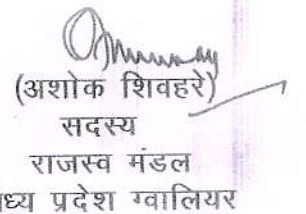 (अशोक शिवहरे)
सदस्य
राजस्व मंडल
प्रदेश ग्वालियर